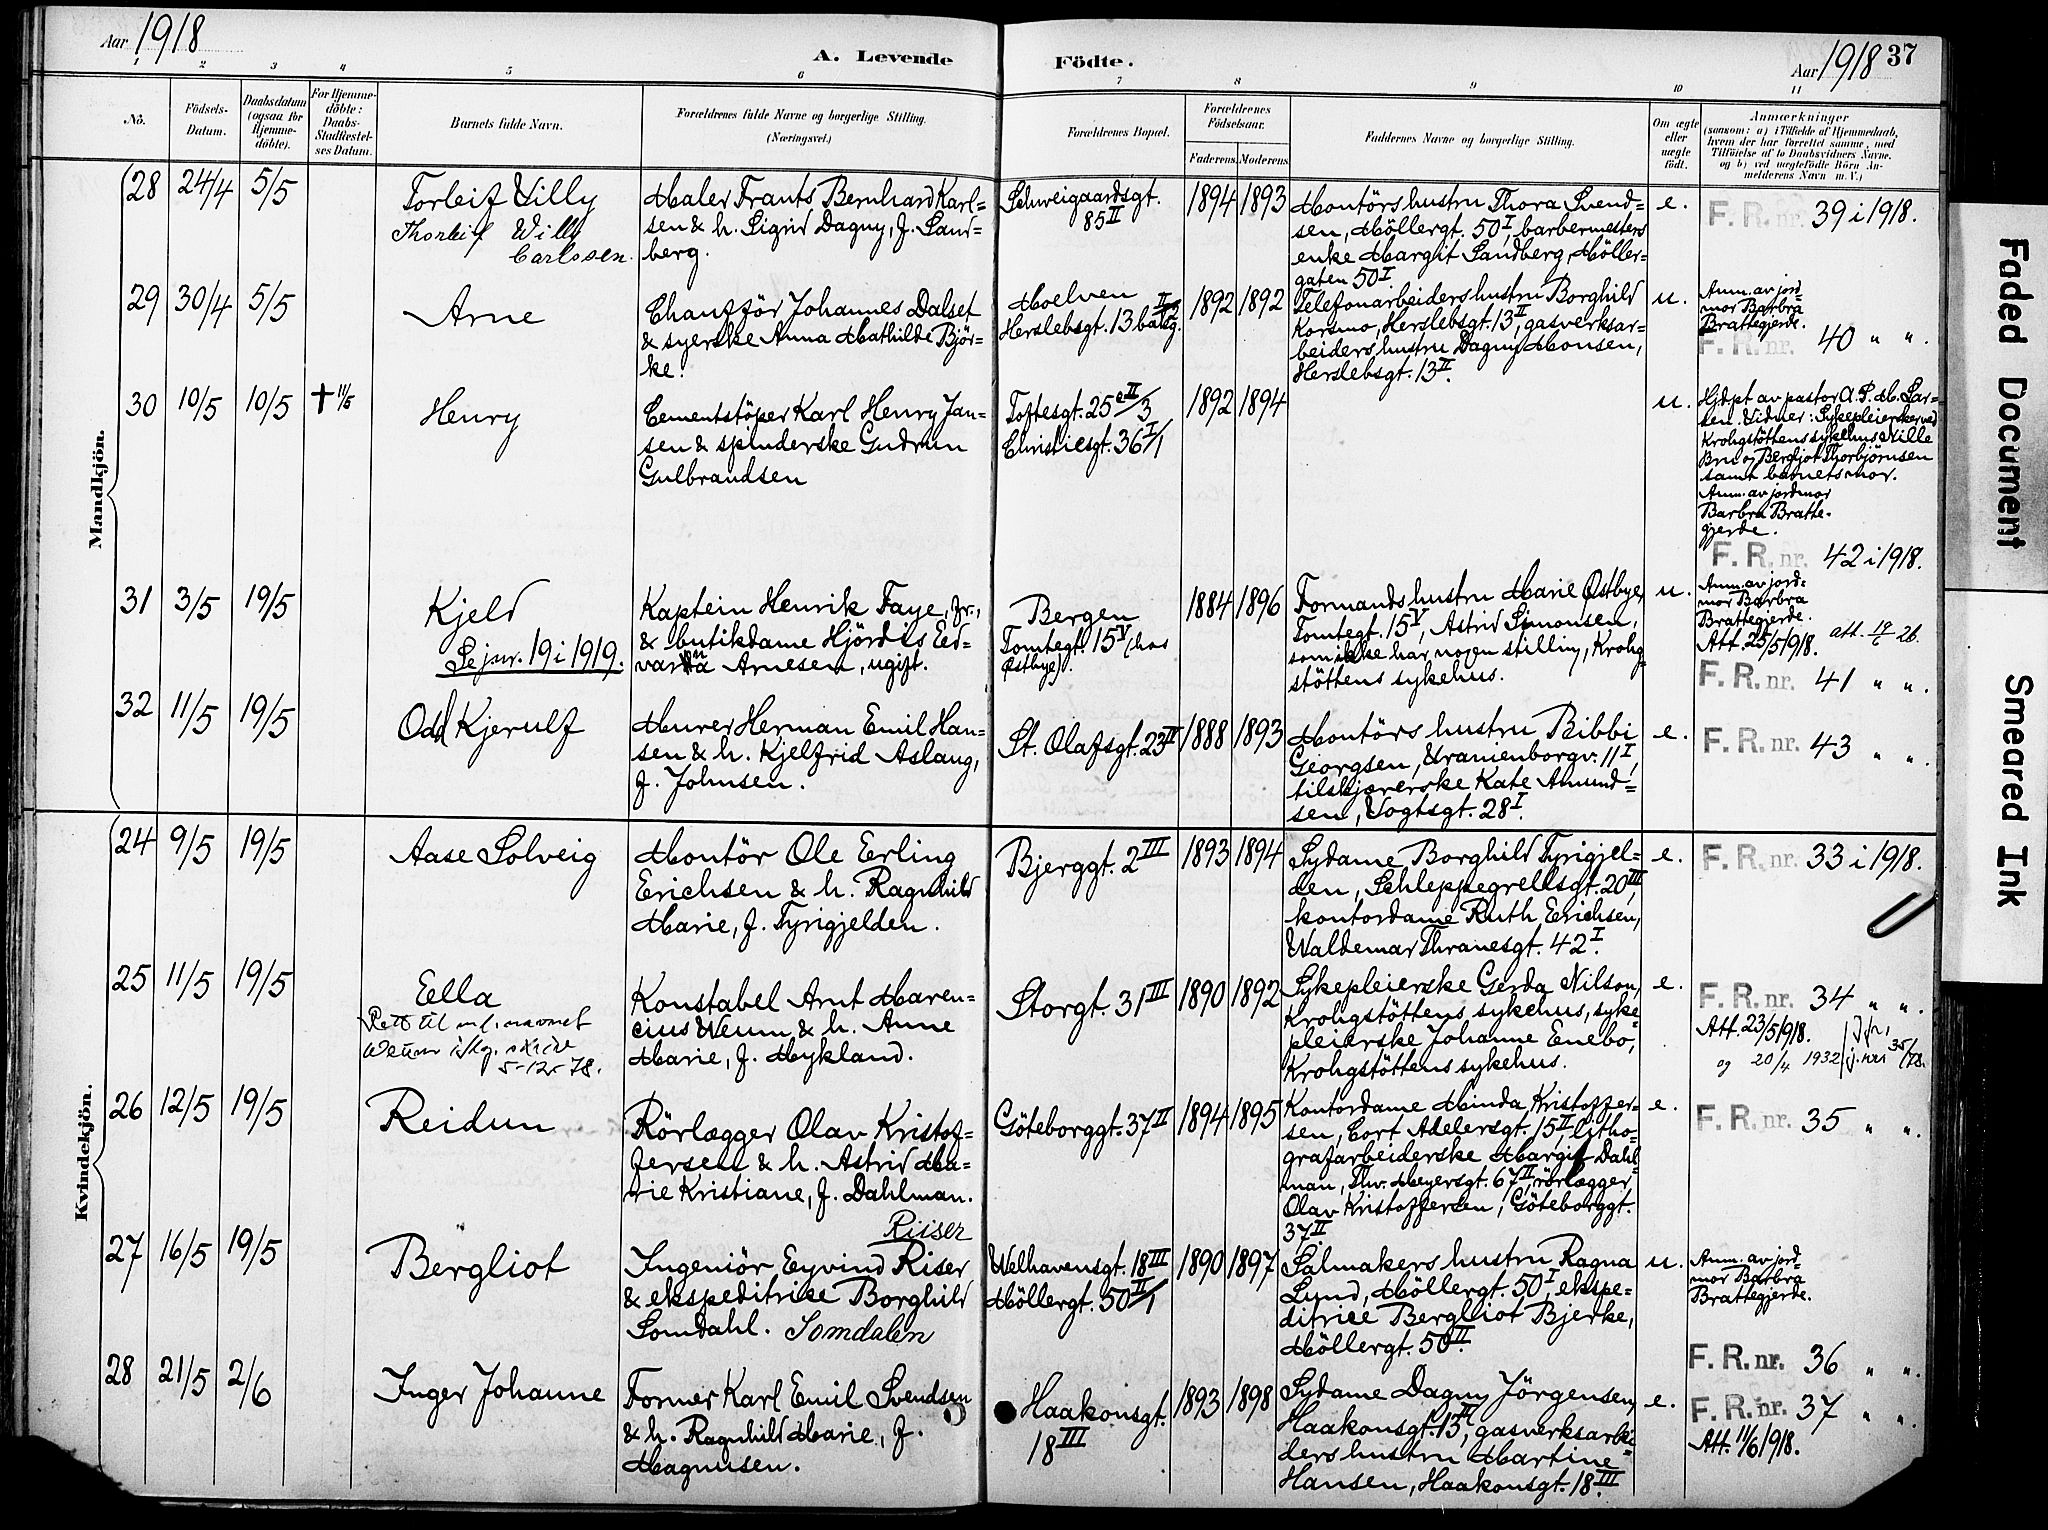 Aar 1918
A. Levende Födte.
Aar 1918 37
1 2 3 4 5 6 7 8 9 10 11
No.
Födsels-
Datum.
Daabsdatum
(ogsaa for
Hjemme-
döbte).
For Hjemme-
döbte:
Daabs-
Stadfæstel-
ses Datum.
Barnets fulde Navn.
Forældrenes fulde Navne og borgerlige Stilling.
(Næringsvei.)
Forældrenes Bopæl.
Forældrenes
Födselsaar.
Faderens. Moderens.
Faddernes Navne og borgerlige Stilling.
Om ægte
eller
uægte
født.
Anmærkninger
(saasom: a) i Tilfælde af Hjemmedaab,
hvem der har forrettet samme, med
Tilföielse af to Daabsvidners Navne.
og b) ved uægtefödte Börn An-
melderens Navn m. V.)
Mandkjön.
28 24/4 5/5
Torleif Villy
Thorleif Willy
Carlssen.
Maler Frants Bernhard Karl=
sen & h. Sigrid Dagny, f. Sand=
berg.
Schweigaardsgt.
85 II
1894 1893
Montörs hustru Thora Svend=
sen, Möllergt. 50 I, barbermesters
enke Margit Sandberg, Möller=
gaten 50 I.
e.
F. R. nr. 39 i 1918.
29 30/4 5/5
Arne
Chaufför Johannes Dalset
& syerske Anna Mathilde Björ=
ke.
Moelven
Herslebsgt. 13 II bakg.
1892 1892
Telefonarbeiders hustru Borghild
Korsmo, Herslebsgt. 13 II, gasverksar=
beiders hustru Dagny Monsen,
Herslebsgt. 13 II.
u.
Anm. av jord=
mor Barbra
Brattegjerde.
F. R. nr. 40 " "
30 10/5 10/5 † 11/5
Henry
Cementstöper Karl Henry Jan=
sen & spinderske Gudrun
Gulbrandsen
Toftesgt. 25 e II/3
Christiesgt. 36 I/1
1892 1894
u.
Hjdpt av pastor A. P. M. Lar=
sen. Vidner: Sykepleiersker ved
Krohgstöttens sykehus Mille
Bru og Bergljot Thorbjörnsen
samt barnets mor.
Anm. av jordmor
Barbra Bratte-
gjerde.
F. R. nr. 42 i 1918.
31 3/5 19/5
Kjeld
Se jnr. 19 i 1919.
Kaptein Henrik Faye, fr.,
& butikdame Hjördis Ed=
varda Arnesen, ugift.
Bergen
Tomtegt. 15 V (hos
Østbye).
1884 1896
Formands hustru Marie Østbye,
Tomtegt. 15 V, Astrid Simonsen,
som ikke har nogen stilling, Krohg=
stöttens sykehus.
u.
Anm. av jord=
mor Barbra
Brattegjerde.
Att. 25/5 1918.
F. R. nr. 41 " "
32 11/5 19/5
Odd Kjerulf
Murer Herman Emil Han=
sen & h. Kjelfrid Aslaug,
f. Johnsen.
St. Olafsgt. 23 II
1888 1893
Montörs hustru Bibbi
Georgsen, Uranienborgv. 11 I,
tilskjærerske Kate Amund=
sen, Vogtsgt. 28 I.
e.
F. R. nr. 43 " "
Kvindekjön.
24 9/5 19/5
Aase Solveig
Montör Ole Erling
Erichsen & h. Ragnhild
Marie, f. Tyrigjelden.
Bjerggt. 2 III
1893 1894
Sydame Borghild Tyrigjel=
den, Schleppegrellsgt. 20 III,
kontordame Ruth Erichsen,
Waldemar Thranesgt. 42 I.
e.
F. R. nr. 33 i 1918.
25 11/5 19/5
Ella
Rett til
Weum
5-12-78.
Konstabel Arnt Maren=
cius Weum & h. Anne
Marie, f. Mykland.
Storgt. 31 III
1890 1892
Sykepleierske Gerda Nilson,
Krohgstöttens sykehus, syke=
pleierske Johanne Enebo,
Krohgstöttens sykehus.
e.
F. R. nr. 34 " "
Att. 23/5 1918.
og 20/4 1932
26 12/5 19/5
Reidun
Rörlægger Olav Kristof=
fersen & h. Astrid Ma=
rie Kristiane, f. Dahlman.
Göteborggt. 37 II
1894 1895
Kontordame Minda Kristoffer=
sen, Cort Adelersgt. 15 II, litho=
grafarbeiderske Margit Dahl=
man, Thv. Meyersgt. 67 II, rörlægger
Olav Kristoffersen, Göteborggt.
37 II
e.
F. R. nr. 35 " "
27 16/5 19/5
Bergliot
Riiser
Ingeniör Eyvind Riser
& ekspeditrice Borghild
Somdahl. Somdalen
Welhavensgt. 18 III
Möllergt. 50 II/1
1890 1897
Salmakers hustru Ragna
Lund, Möllergt. 50 I, ekspe=
ditrice Bergliot Bjerke,
Möllergt. 50 II.
u.
Anm. av jord=
mor Barbra
Brattegjerde.
F. R. nr. 36 " "
28 21/5 2/6
Inger Johanne
Former Karl Emil Svendsen
& h. Ragnhild Marie, f.
Magnusen.
Haakonsgt.
18 III
1893 1898
Sydame Dagny Jörgensen,
Haakonsgt. 13 III, gasverksarbei=
ders hustru Martine
Hansen, Haakonsgt. 18 III
e.
F. R. nr. 37 " "
Att. 11/6 1918.
Faded Document
Smeared Ink